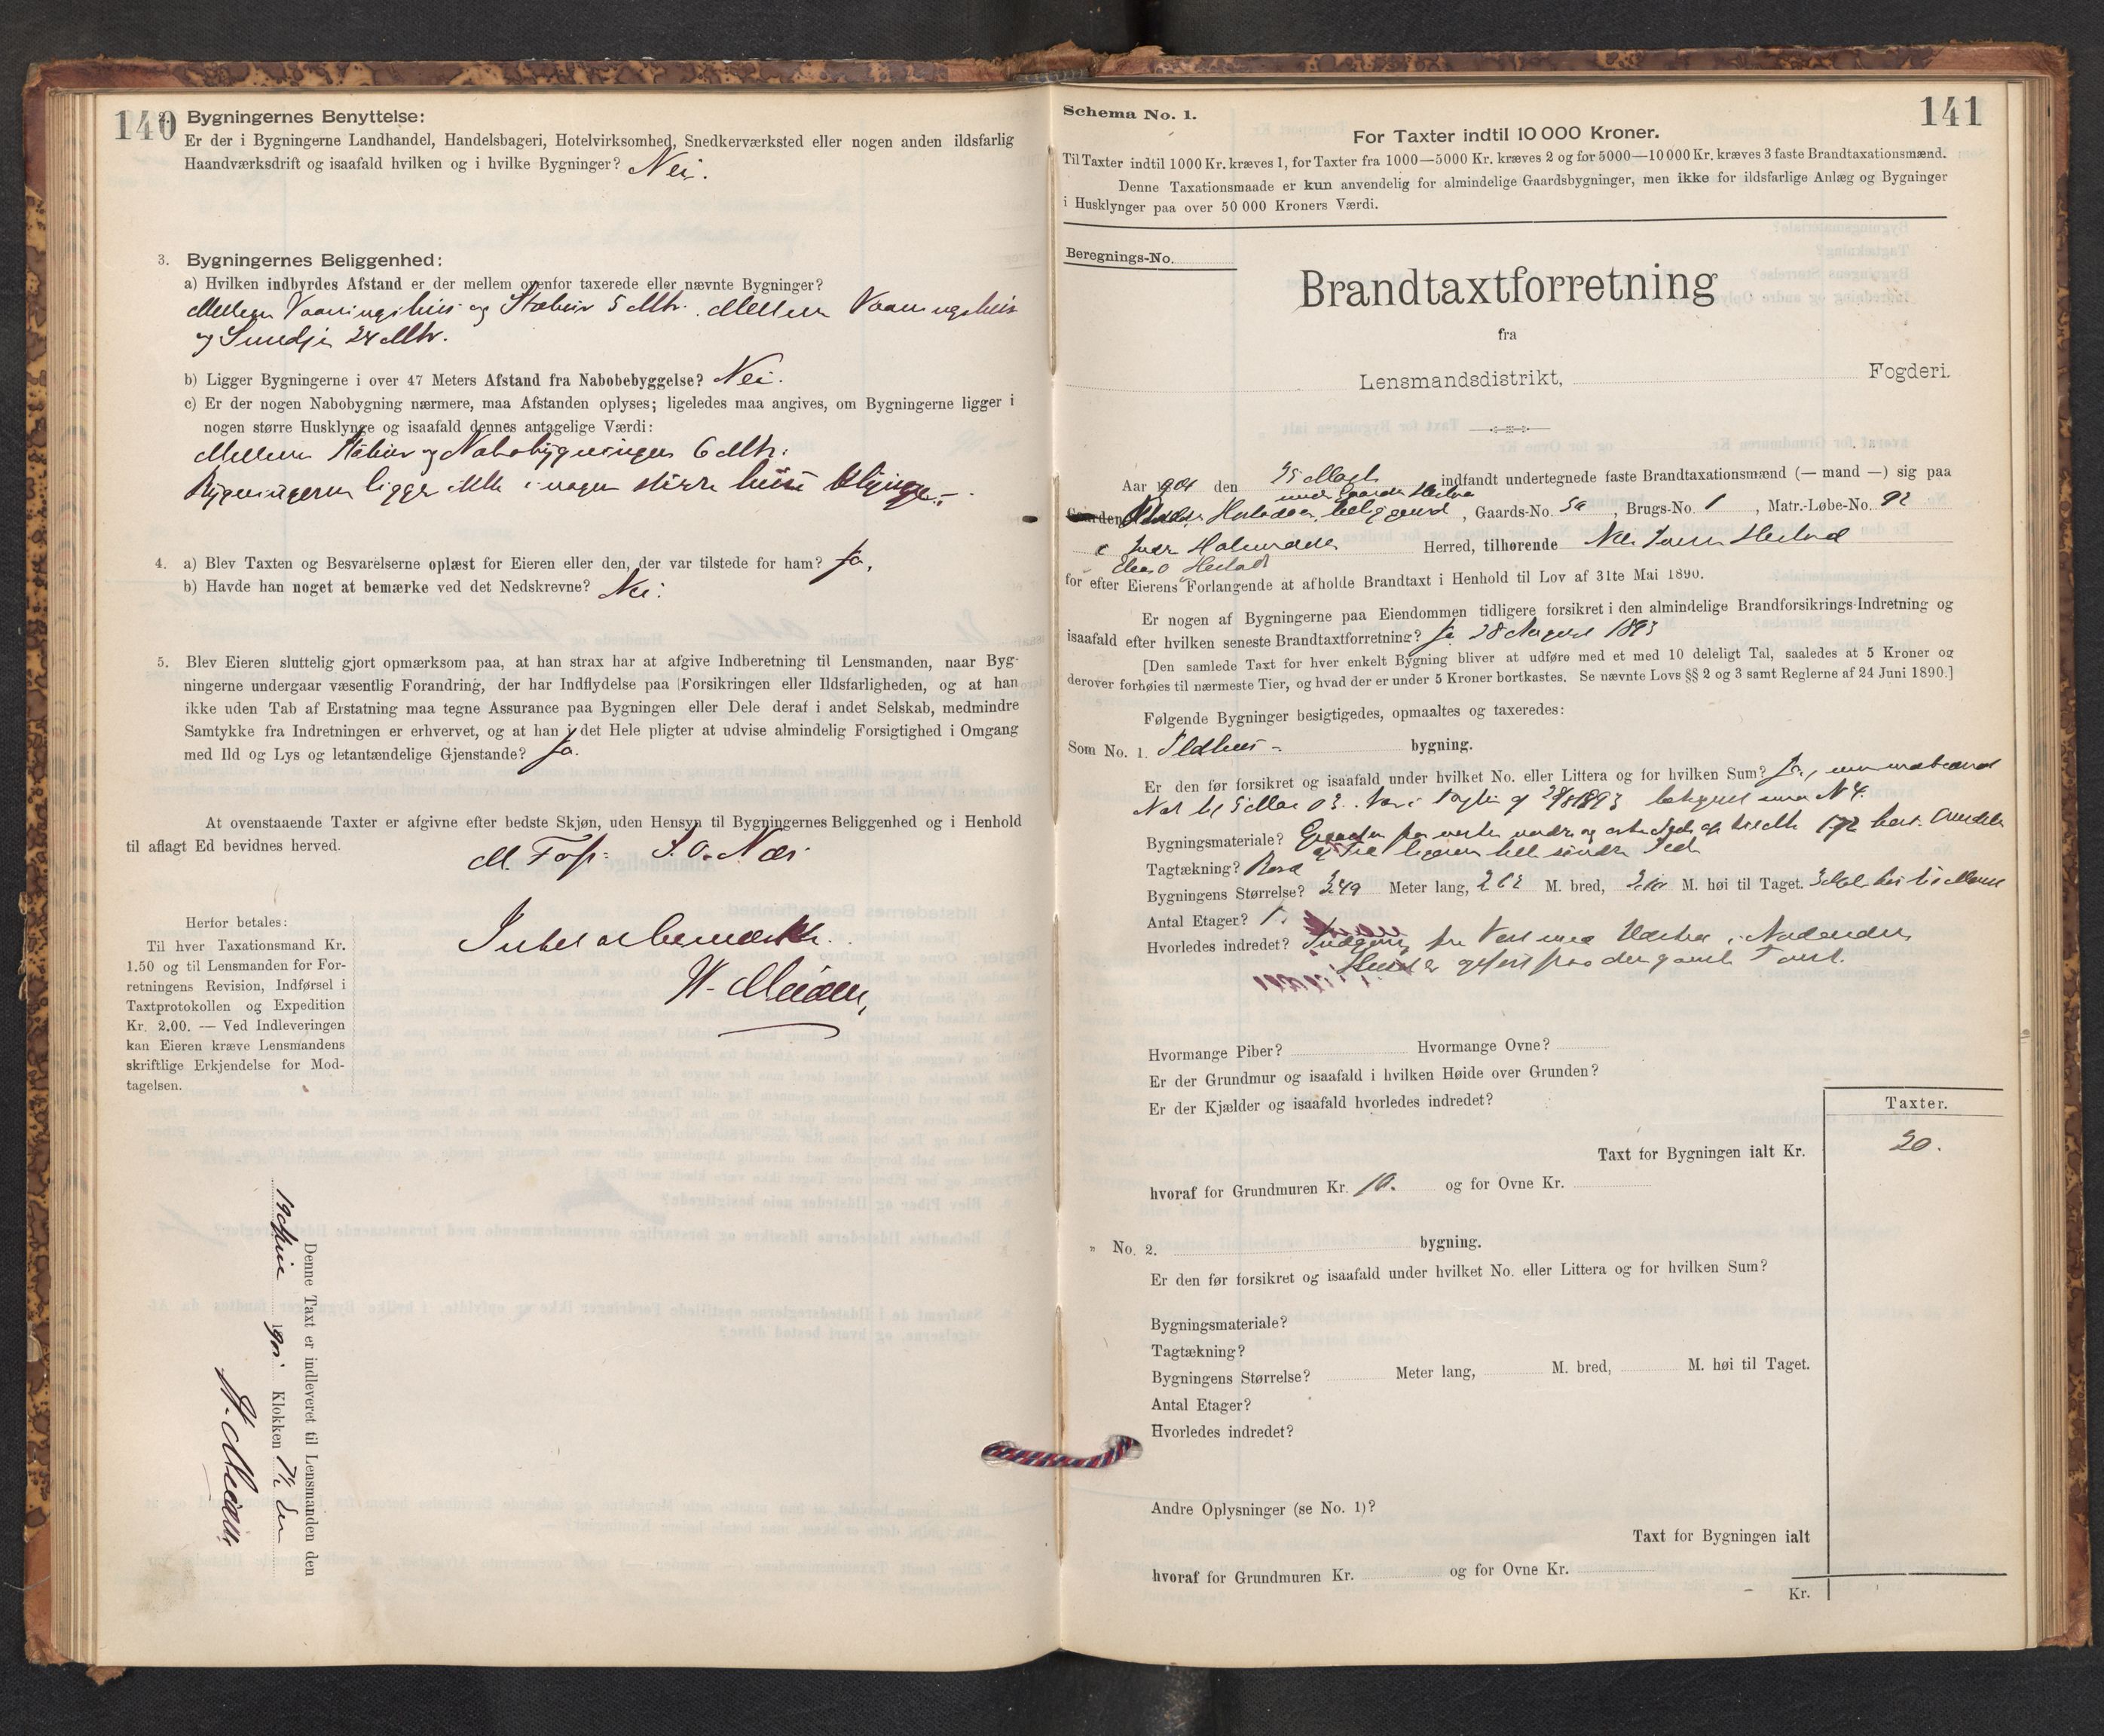 140
Bygningernes Benyttelse:
Er der i Bygningerne Landhandel, Handelsbageri, Hotelvirksomhed, Snedkerværksted eller nogen anden ildsfarlig
Haandværksdrift og isaafald hvilken og i hvilke Bygninger? Nei.
3. Bygningernes Beliggenhed:
a) Hvilken indbyrdes Afstand er der mellem ovenfor taxerede eller nævnte Bygninger?
Mellem Vaaningshus og Stabur 5 Mtr. Mellem Vaaningshus
og 24 Mtr.
b) Ligger Bygningerne i over 47 Meters Afstand fra Nabobebyggelse? Nei.
c) Er der nogen Nabobygning nærmere, maa Afstanden oplyses; ligeledes maa angives, om Bygningerne ligger i
nogen større Husklynge og isaafald dennes antagelige Værdi:
Mellem Stabur og Nabobygningen 6 Mtr.
Bygningerne ligger ikke i nogen større huse klynge.
4. a) Blev Taxten og Besvarelserne oplæst for Eieren eller den, der var tilstede for ham? Ja.
b) Havde han noget at bemærke ved det Nedskrevne? Nei.
5. Blev Eieren sluttelig gjort opmærksom paa, at han strax har at afgive Indberetning til Lensmanden, naar Byg-
ningerne undergaar væsentlig Forandring, der har Indflydelse paa Forsikringen eller Ildsfarligheden, og at han
ikke uden Tab af Erstatning maa tegne Assurance paa Bygningen eller Dele deraf i andet Selskab, medmindre
Samtykke fra Indretningen er erhvervet, og at han i det Hele pligter at udvise almindelig Forsigtighed i Omgang
med Ild og Lys og letantændelige Gjenstande? Ja.
At ovenstaaende Taxter er afgivne efter bedste Skjøn, uden Hensyn til Bygningernes Beliggenhed og i Henhold
til aflagt Ed bevidnes herved.
M. Foss S. O. Næs
Intet at bemærke.
Herfor betales:
Til hver Taxationsmand Kr.
1.50 og til Lensmanden for For-
retningens Revision, Indførsel i
Taxtprotokollen og Expedition
Kr. 2.00. — Ved Indleveringen
kan Eieren kræve Lensmandens
skriftlige Erkjendelse for Mod-
tagelsen.
Denne Taxt er indleveret til Lensmanden den
190 Klokken
141
Schema No. 1.
For Taxter indtil 10 000 Kroner.
Til Taxter indtil 1000 Kr. kræves 1, for Taxter fra 1000—5000 Kr. kræves 2 og for 5000—10 000 Kr. kræves 3 faste Brandtaxationsmænd.
Denne Taxationsmaade er kun anvendelig for almindelige Gaardsbygninger, men ikke for ildsfarlige Anlæg og Bygninger
i Husklynger paa over 50 000 Kroners Værdi.
Beregnings-No.
Brandtaxtforretning
fra
Lensmandsdistrikt, Fogderi.
Aar 1904 den 25 indfandt undertegnede faste Brandtaxationsmænd (— mand —) sig paa
under Gaarden Hestad
Gaarden , Gaards-No. 50, Brugs-No. 1, Matr.-Løbe-No. 92
i Indre Holmedal Herred, tilhørende Hestad
Hestad
for efter Eierens Forlangende at afholde Brandtaxt i Henhold til Lov af 31te Mai 1890.
Er nogen af Bygningerne paa Eiendommen tidligere forsikret i den almindelige Brandforsikrings-Indretning og
isaafald efter hvilken seneste Brandtaxtforretning? Ja 28 August 1893
[Den samlede Taxt for hver enkelt Bygning bliver at udføre med et med 10 deleligt Tal, saaledes at 5 Kroner og
derover forhøies til nærmeste Tier, og hvad der er under 5 Kroner bortkastes. Se nævnte Lovs §§ 2 og 3 samt Reglerne af 24 Juni 1890.]
Følgende Bygninger besigtigedes, opmaaltes og taxeredes:
Som No. 1. Ildhus bygning.
Er den før forsikret og isaafald under hvilket No. eller Littera og for hvilken Sum? Ja,
Bygningsmateriale?
Tagtækning? Bord
Bygningens Størrelse? 349 Meter lang, 262 M. bred, M. høi til Taget.
Antal Etager? 1.
Hvorledes indredet? Indgang fra Vest med
Huset er paa den gamle Tomt.
Hvormange Piber? Hvormange Ovne?
Er der Grundmur og isaafald i hvilken Høide over Grunden?
Er der Kjælder og isaafald hvorledes indredet?
Taxter.
Taxt for Bygningen ialt Kr. 20.
hvoraf for Grundmuren Kr. 10. og for Ovne Kr.
„ No. 2. bygning.
Er den før forsikret og isaafald under hvilket No. eller Littera og for hvilken Sum?
Bygningsmateriale?
Tagtækning?
Bygningens Størrelse? Meter lang, M. bred, M. høi til Taget.
Antal Etager?
Hvorledes indredet?
Andre Oplysninger (se No. 1)?
Taxt for Bygningen ialt
hvoraf for Grundmuren Kr. og for Ovne Kr.
Kr.